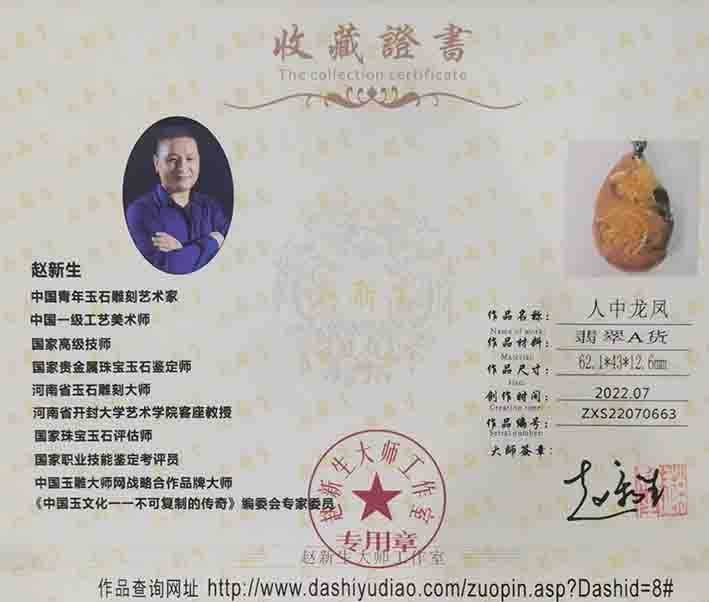 收藏證書
The collection certificate
赵新生
中国青年玉石雕刻艺术家
中国一级工艺美术师
国家高级技师
国家贵金属珠宝玉石鉴定师
河南省玉石雕刻大师
河南省开封大学艺术学院客座教授
国家珠宝玉石评估师
国家职业技能鉴定考评员
中国玉雕大师网战略合作品牌大师
《中国玉文化一一不可复制的传奇》编委会专家委员
作品名称: 人中龙凤
Name of work:
作品材料: 翡翠A货
Material:
作品尺寸: 62.1*43*12.6mm
创作时间: 2022.07
Creation time:
作品编号: ZXS22070663
Serial number:
大师签章:
赵新生
赵新生大师工作室
专用章
赵新生大师工作室
作品查询网址 http://www.dashiyudiao.com/zuopin.asp?Dashid=8#